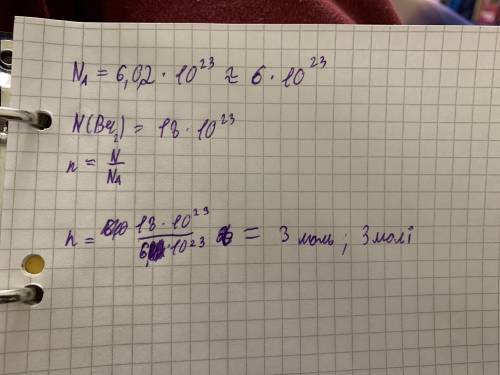 N_A = 6,02 · 10^23 ≈ 6 · 10^23
N(Br_2) = 18 · 10^23
n = N / N_A
n = 18 · 10^23 / 6 · 10^23 = 3 моль ; 3 молі